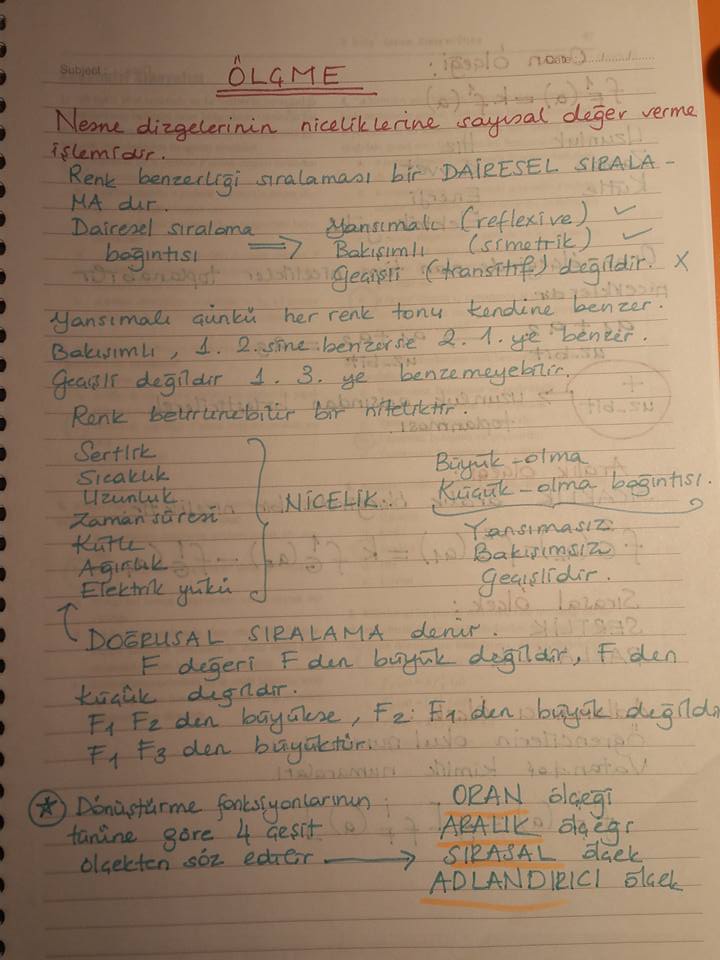 Subject :
Date : ...../...../..........
ÖLÇME
Nesne dizgelerinin niceliklerine sayısal değer verme
işlemidir.
Renk benzerliği sıralaması bir DAİRESEL SIRALA-
MA dır.
Dairesel sıralama bağıntısı ⟹ Yansımalı (reflexive) ✓
Bakışımlı (simetrik) ✓
Geçişli (transitif) değildir. X
Yansımalı çünkü her renk tonu kendine benzer.
Bakışımlı, 1. 2.sine benzerse 2. 1.ye benzer.
Geçişli değildir 1. 3. ye benzemeyebilir.
Renk belirlenebilir bir niteliktir.
Sertlik
Sıcaklık
Uzunluk
Zaman süresi
Kütle
Ağırlık
Elektrik yükü
NİCELİK
Büyük-olma
Küçük-olma bağıntısı.
Yansımasız
Bakışımsız
Geçişlidir.
DOĞRUSAL SIRALAMA denir.
F değeri F den büyük değildir, F den
küçük değildir.
F1 F2 den büyükse, F2 F1 den büyük değildir
F1 F3 den büyüktür
* Dönüştürme fonksiyonlarının
türüne göre 4 çeşit
ölçekten söz edilir →
ORAN ölçeği
ARALIK ölçeği
SIRASAL ölçek
ADLANDIRICI ölçek